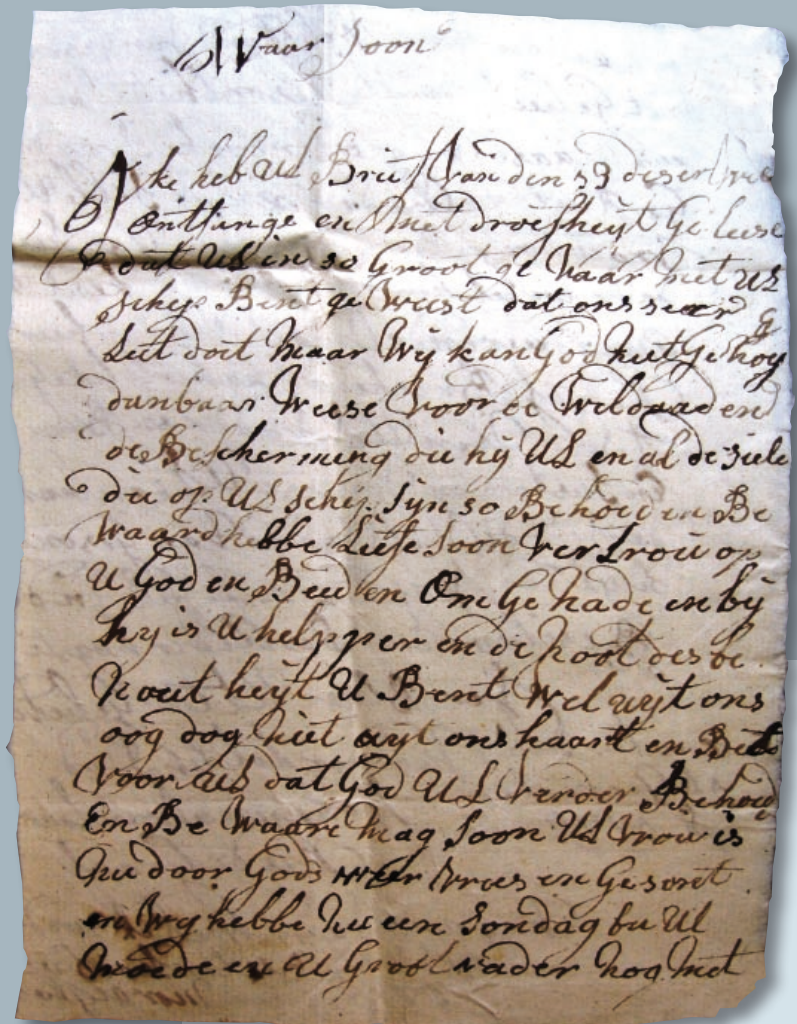 Waar Soon
Ik heb UL Brief van den 13 deser wel
ontfange en met droefheyt Geleese
dat UL in so Groot ge vaar met UL
schip Bent ge Weest dat ons seer
Leet doet maar Wy kan God niet Ge nog
danbaar Weese voor de Weldaaden
de Bescherming die hy UL en al de ziele
die op UL schip syn so Behoed en Be
waard hebbe Liefe soon vertrou op
U God en Beed en Om Ge nade en by
hy is U helpper en de
nout heyt U Bent Wel uyt ons
oog dog niet uyt ons haart en Bede
voor UL dat God UL verder Behoed
En Be Waare mag soon UL vrou is
nu door Gods weer vris en Gesont
en Wy hebbe nu een Sondag bu Ul
Moede en U Groot vader nog met